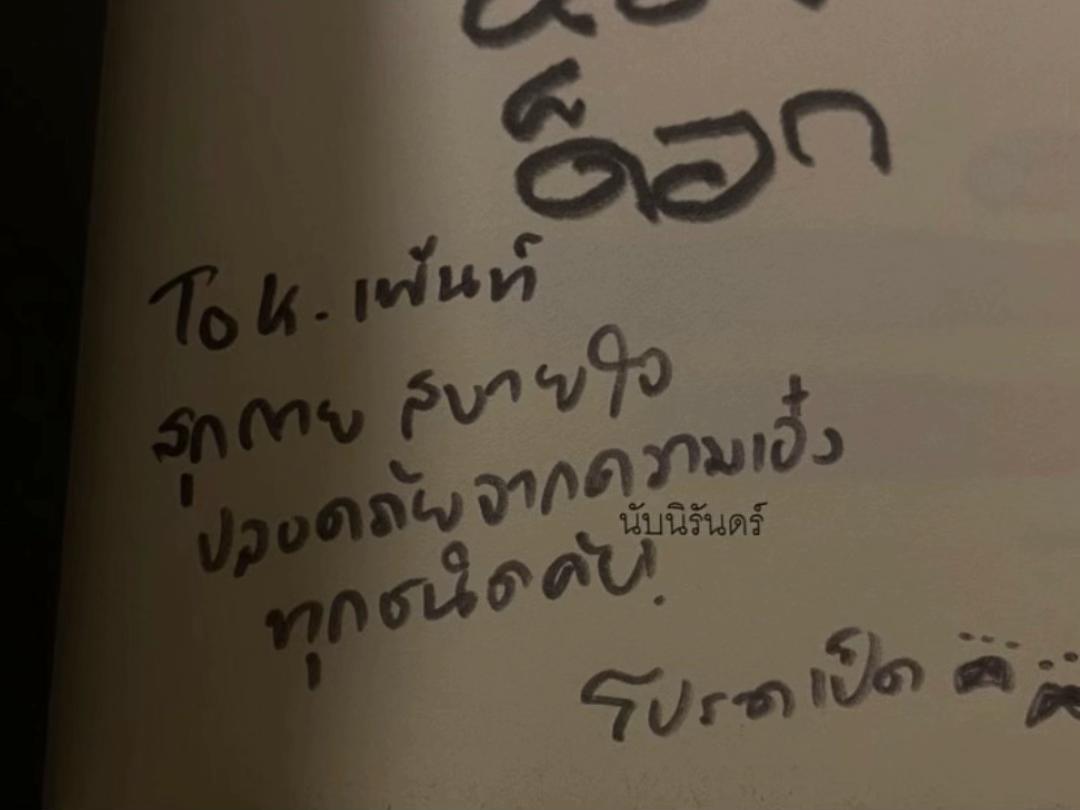 ด็อก
To k. เฟ้นท์
สุกกาย สบายใจ
ปลอดภัยจากความเอี๋ง
นับนิรันดร์
ทุกชนิดครับ!
โปรดเป็ด